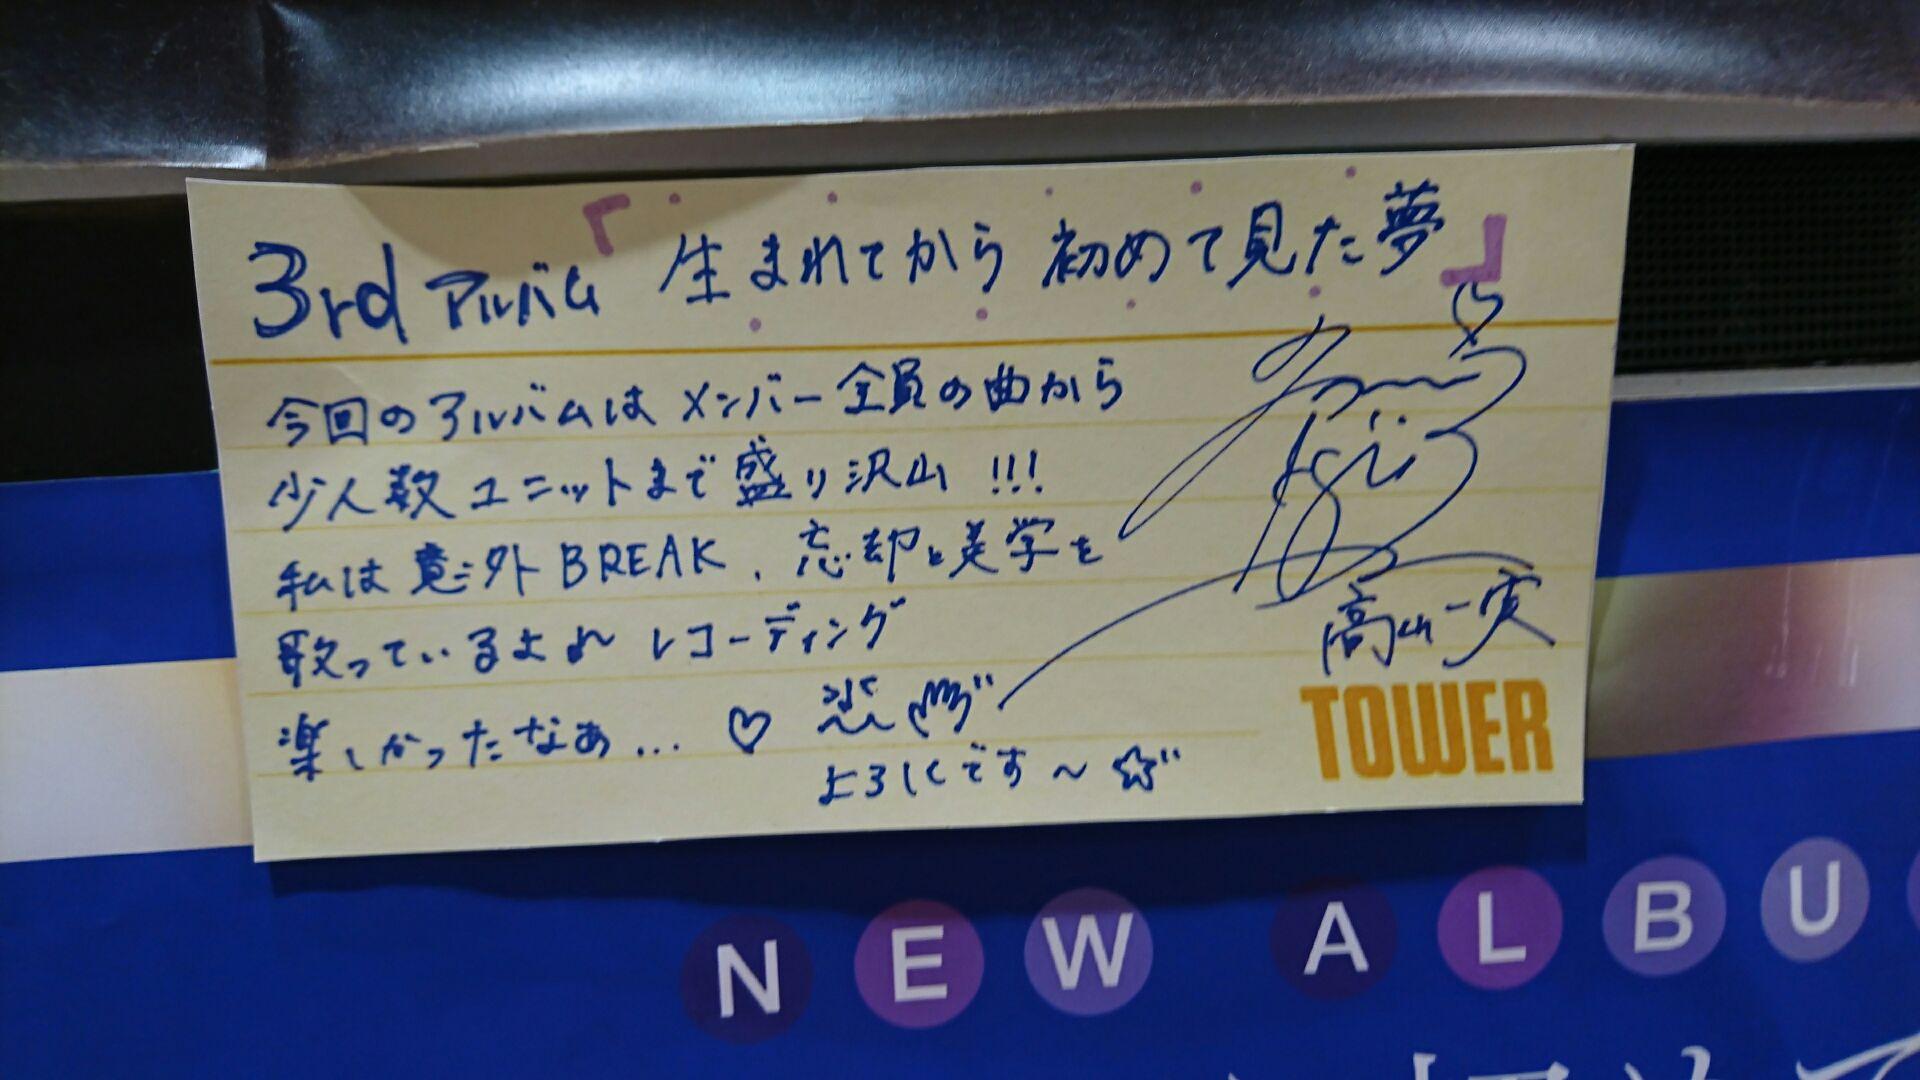 3rd アルバム 『生まれてから 初めて見た夢』
今回のアルバムは メンバー全員の曲から
少人数ユニットまで盛り沢山 !!!
私は意外BREAK、忘却と美学を
歌っているよね レコーディング
楽しかったなあ... ♡
よろしくです〜☆
高山一実
TOWER
NEW ALBU
初めて